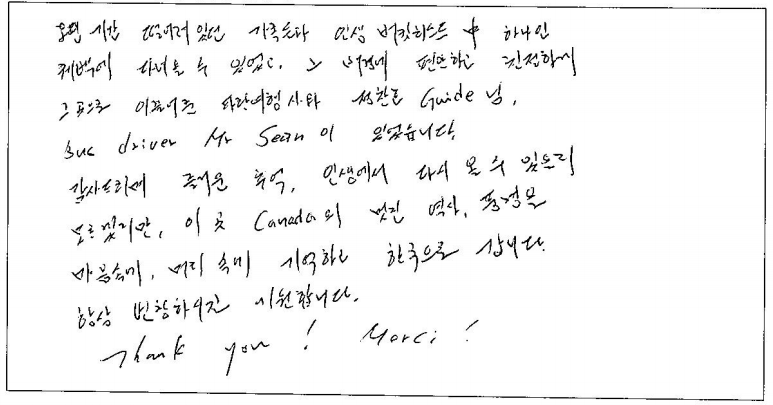 오랜 시간 떨어져 있던 가족들과 인생 버킷리스트 中 하나인
퀘벡에 다녀올 수 있었고, 그 여정에 편안하고 친절하게
이끌어준 파란여행사와 Guide 님,
Bus driver Mr Sean 이 있었습니다.
감사드리며 즐거운 추억, 인생에서 다시 올 수 있을지
모르겠지만, 이 곳 Canada의 멋진 역사, 풍경을
마음속에, 머리 속에 기억하고 한국으로 갑니다.
항상 번창하시길 기원합니다.
Thank you! Merci!